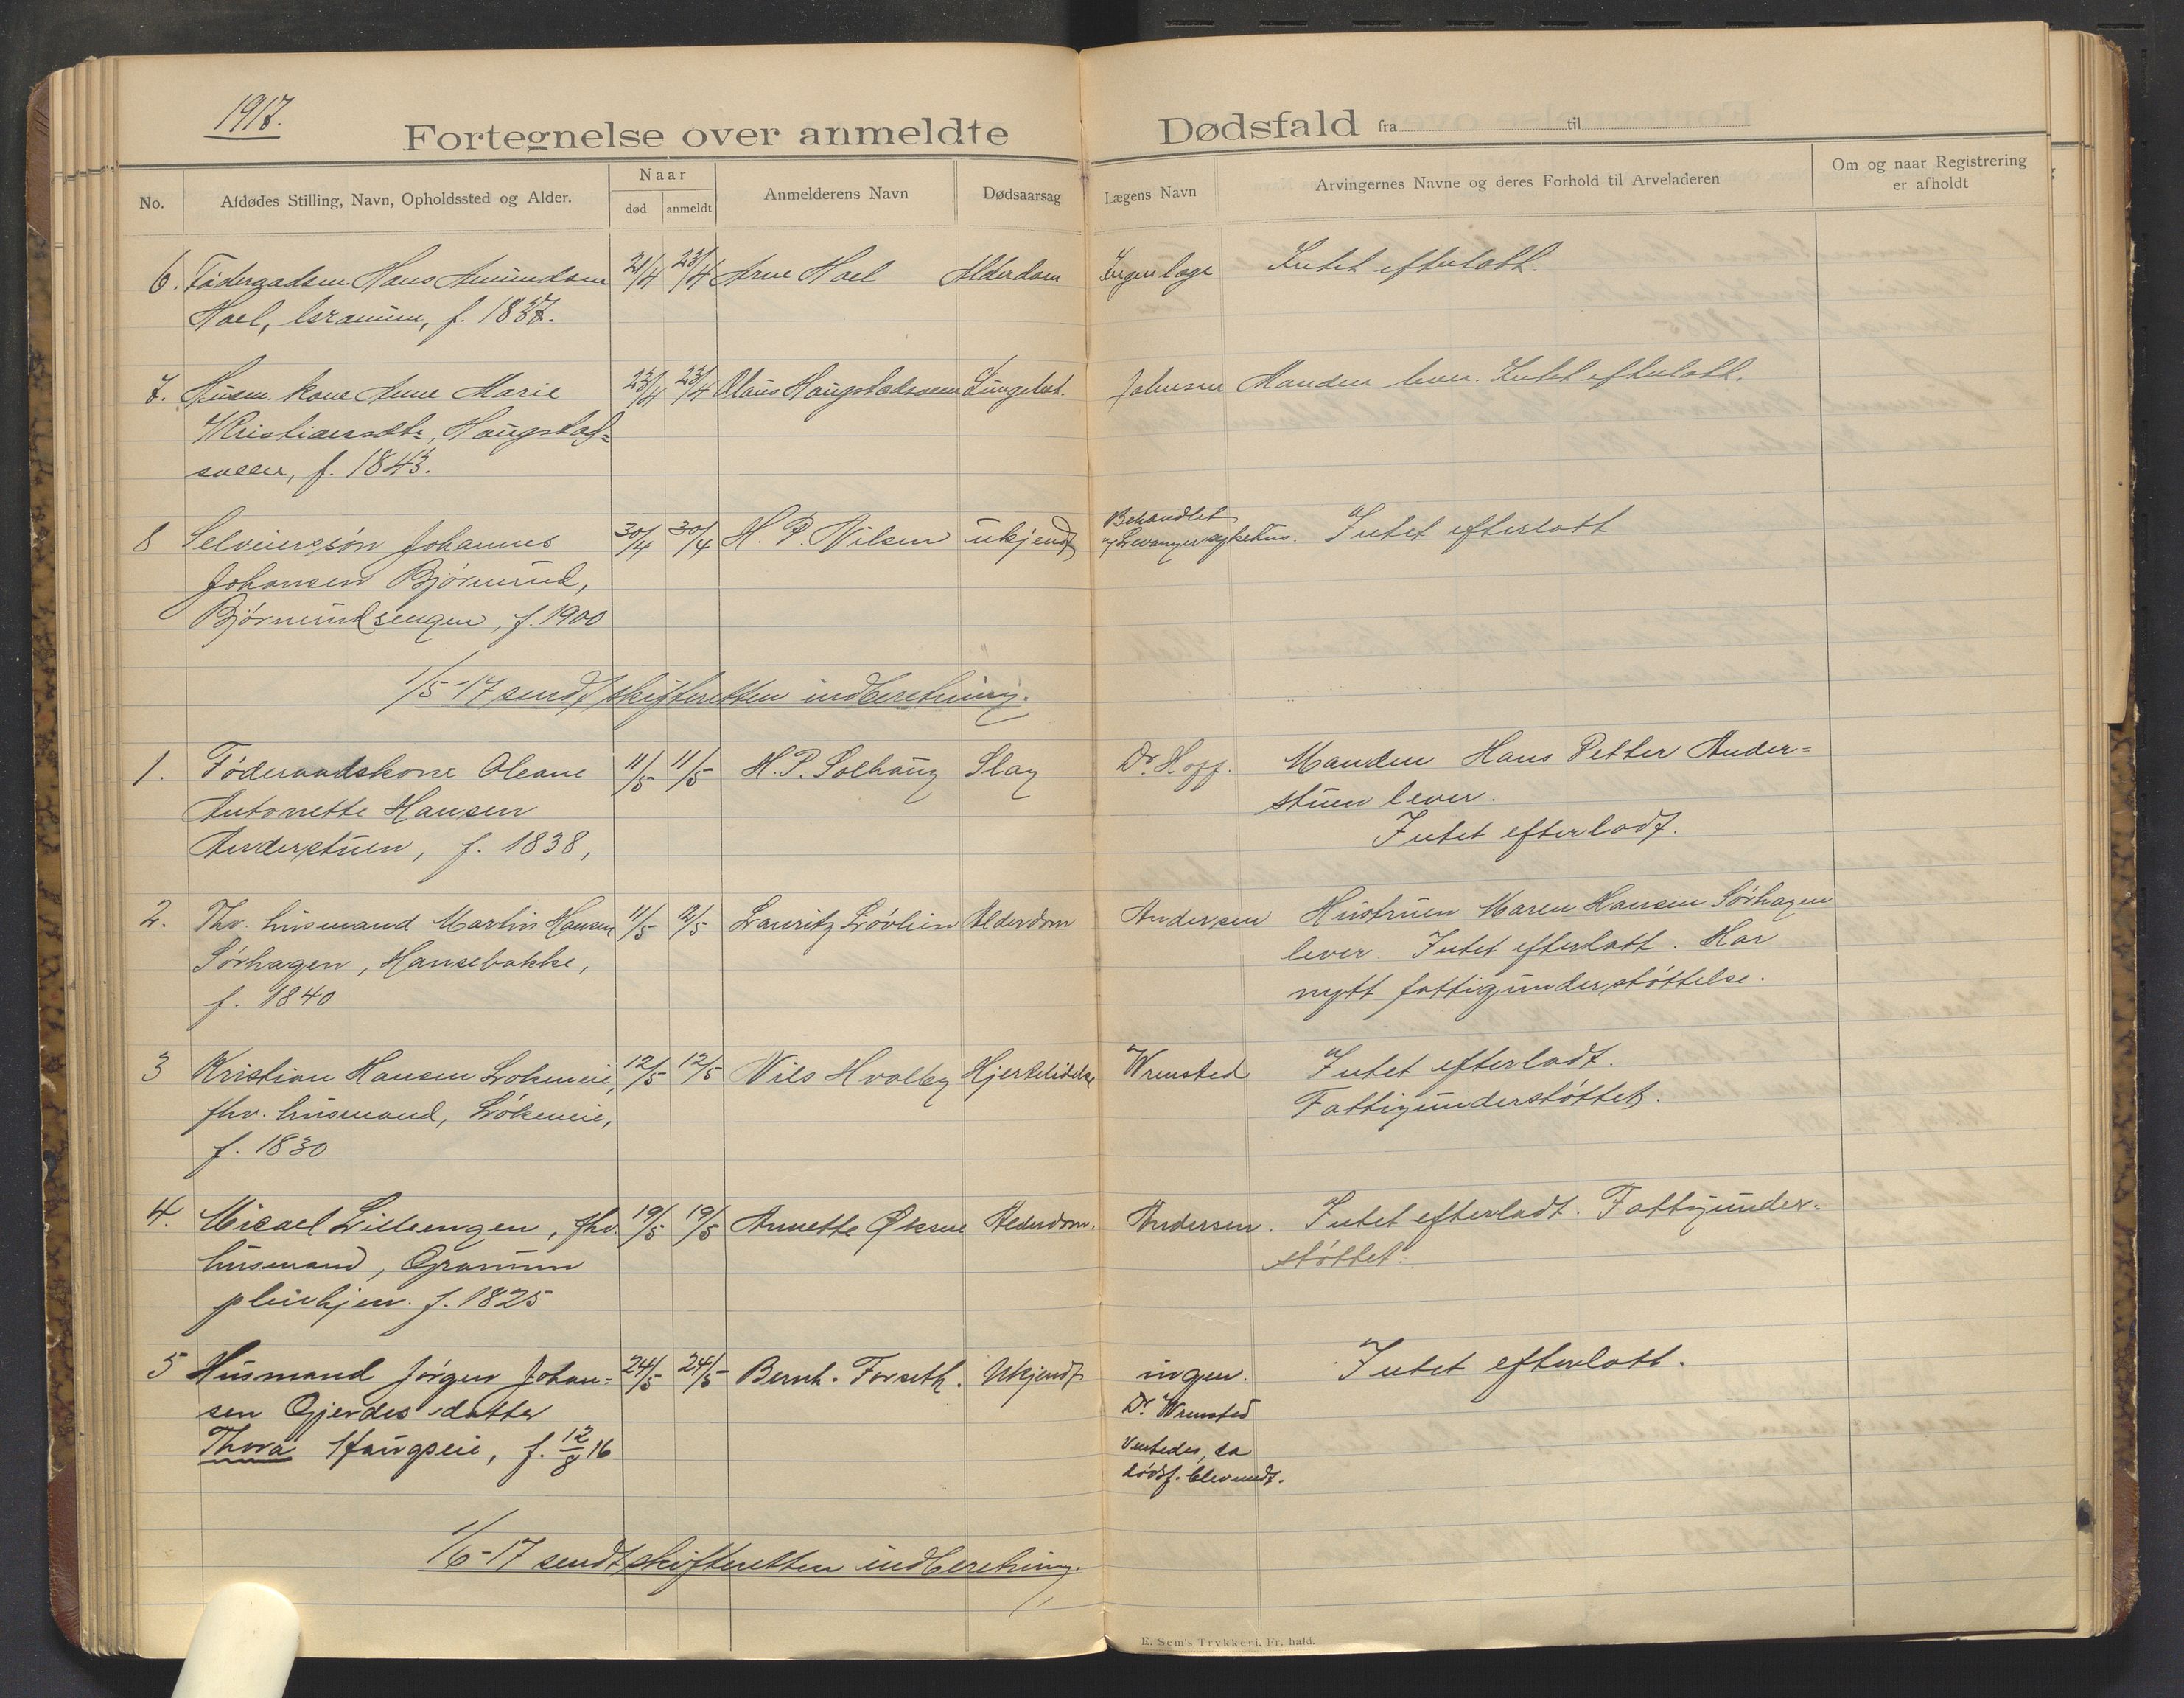 1917.
Fortegnelse over anmeldte Dødsfald fra til
No. Afdødes Stilling, Navn, Opholdssted og Alder. Naar død anmeldt Anmelderens Navn Dødsaarsag Lægens Navn Arvingernes Navne og deres Forhold til Arveladeren Om og naar Registrering er afholdt
6. Føderaadsm. Hans Amundsen 21/4 23/4 Arne Hoel Alderdom Ingen læge Intet efterlatt.
Hoel, f. 1837.
7. Husm. kone Anne Marie 23/4 23/4 Olaus Haugstadsveen Lungebet. Johnsen Manden lever. Intet efterlatt.
Kristiansdtr, Haugstad=
sveen, f. 1843.
8 Selveierssøn Johannes 30/4 30/4 H. P. Nilsen ukjendt Behandlet
Johansen Bjørnerud, sykehus. Intet efterlatt
Bjørnerudsengen, f. 1900
1/5-17 sendt skifteretten indberetning.
1. Føderaadskone Oleane 11/5 11/5 H. P. Solhaug Slag Dr. Hoff. Manden Hans Petter Ander=
Antonette Hansen stuen lever.
Anderstuen, f. 1838, Intet efterladt.
2. Fhv. husmand Martin Hansen 11/5 12/5 Lauritz Løvlien Alderdom Andersen Hustruen Maren Hansen Sørhagen
Sørhagen, Hansebakke, lever. Intet efterlatt. Har
f. 1840 nytt fattigunderstøttelse.
3 Kristian Hansen Løkeneie, 12/5 12/5 Nils Hvalby Hjertelidelse Wrensted Intet efterladt.
fhv. husmand, Løkeneie, Fattigunderstøttet.
f. 1830
4. Micael Lilleengen, fhv. 19/5 19/5 Annette Øksne Alderdom. Andersen. Intet efterladt. Fattigunder-
husmand, Granum støttet.
pleiehjem. f. 1825
5 Husmand Jørgen Johan= 24/5 24/5 Bernh. Forseth. Ukjendt ingen. Intet efterlatt.
sen Gjerdes datter Dr. Wrensted
Thora Haugseie, f. 12/8 16 Ventedes, da
dødsf. blev meldt.
1/6-17 sendt skifteretten indberetning.
E. Sem's Trykkeri, Fr. hald.